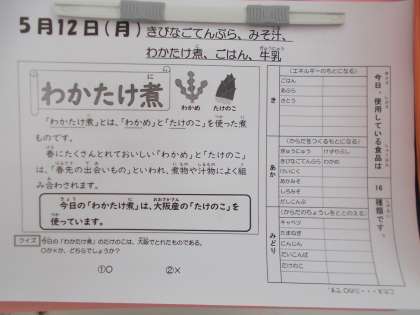 5月12日(月)きびなごてんぷら、みそ汁、
わかたけ煮、ごはん、牛乳
わかたけ煮
わかめ
たけのこ
「わかたけ煮」とは、「わかめ」と「たけのこ」を使った煮
ものです。
春にたくさんとれておいしい「わかめ」と「たけのこ」
は、「春先の出会いもの」といわれ、煮物や汁物によく組
み合わされます。
今日の「わかたけ煮」は、大阪産の「たけのこ」を
使っています。
クイズ
今日の「わかたけ煮」のたけのこは、大阪でとれたものである。
○か×か、どちらでしょうか?
①○ ②×
今日、使用している食品は
16
種類です。
き
(エネルギーのもとになる)
ごはん
あぶら
さとう
あか
(からだをつくるもとになる)
ぎゅうにゅう
けずりぶし
きびなごてんぷら
わかめ
けいにく
あかみそ
しろみそ
だしこんぶ
みどり
(からだのちょうしをととのえる)
キャベツ
たまねぎ
にんじん
だいこんば
たけのこ